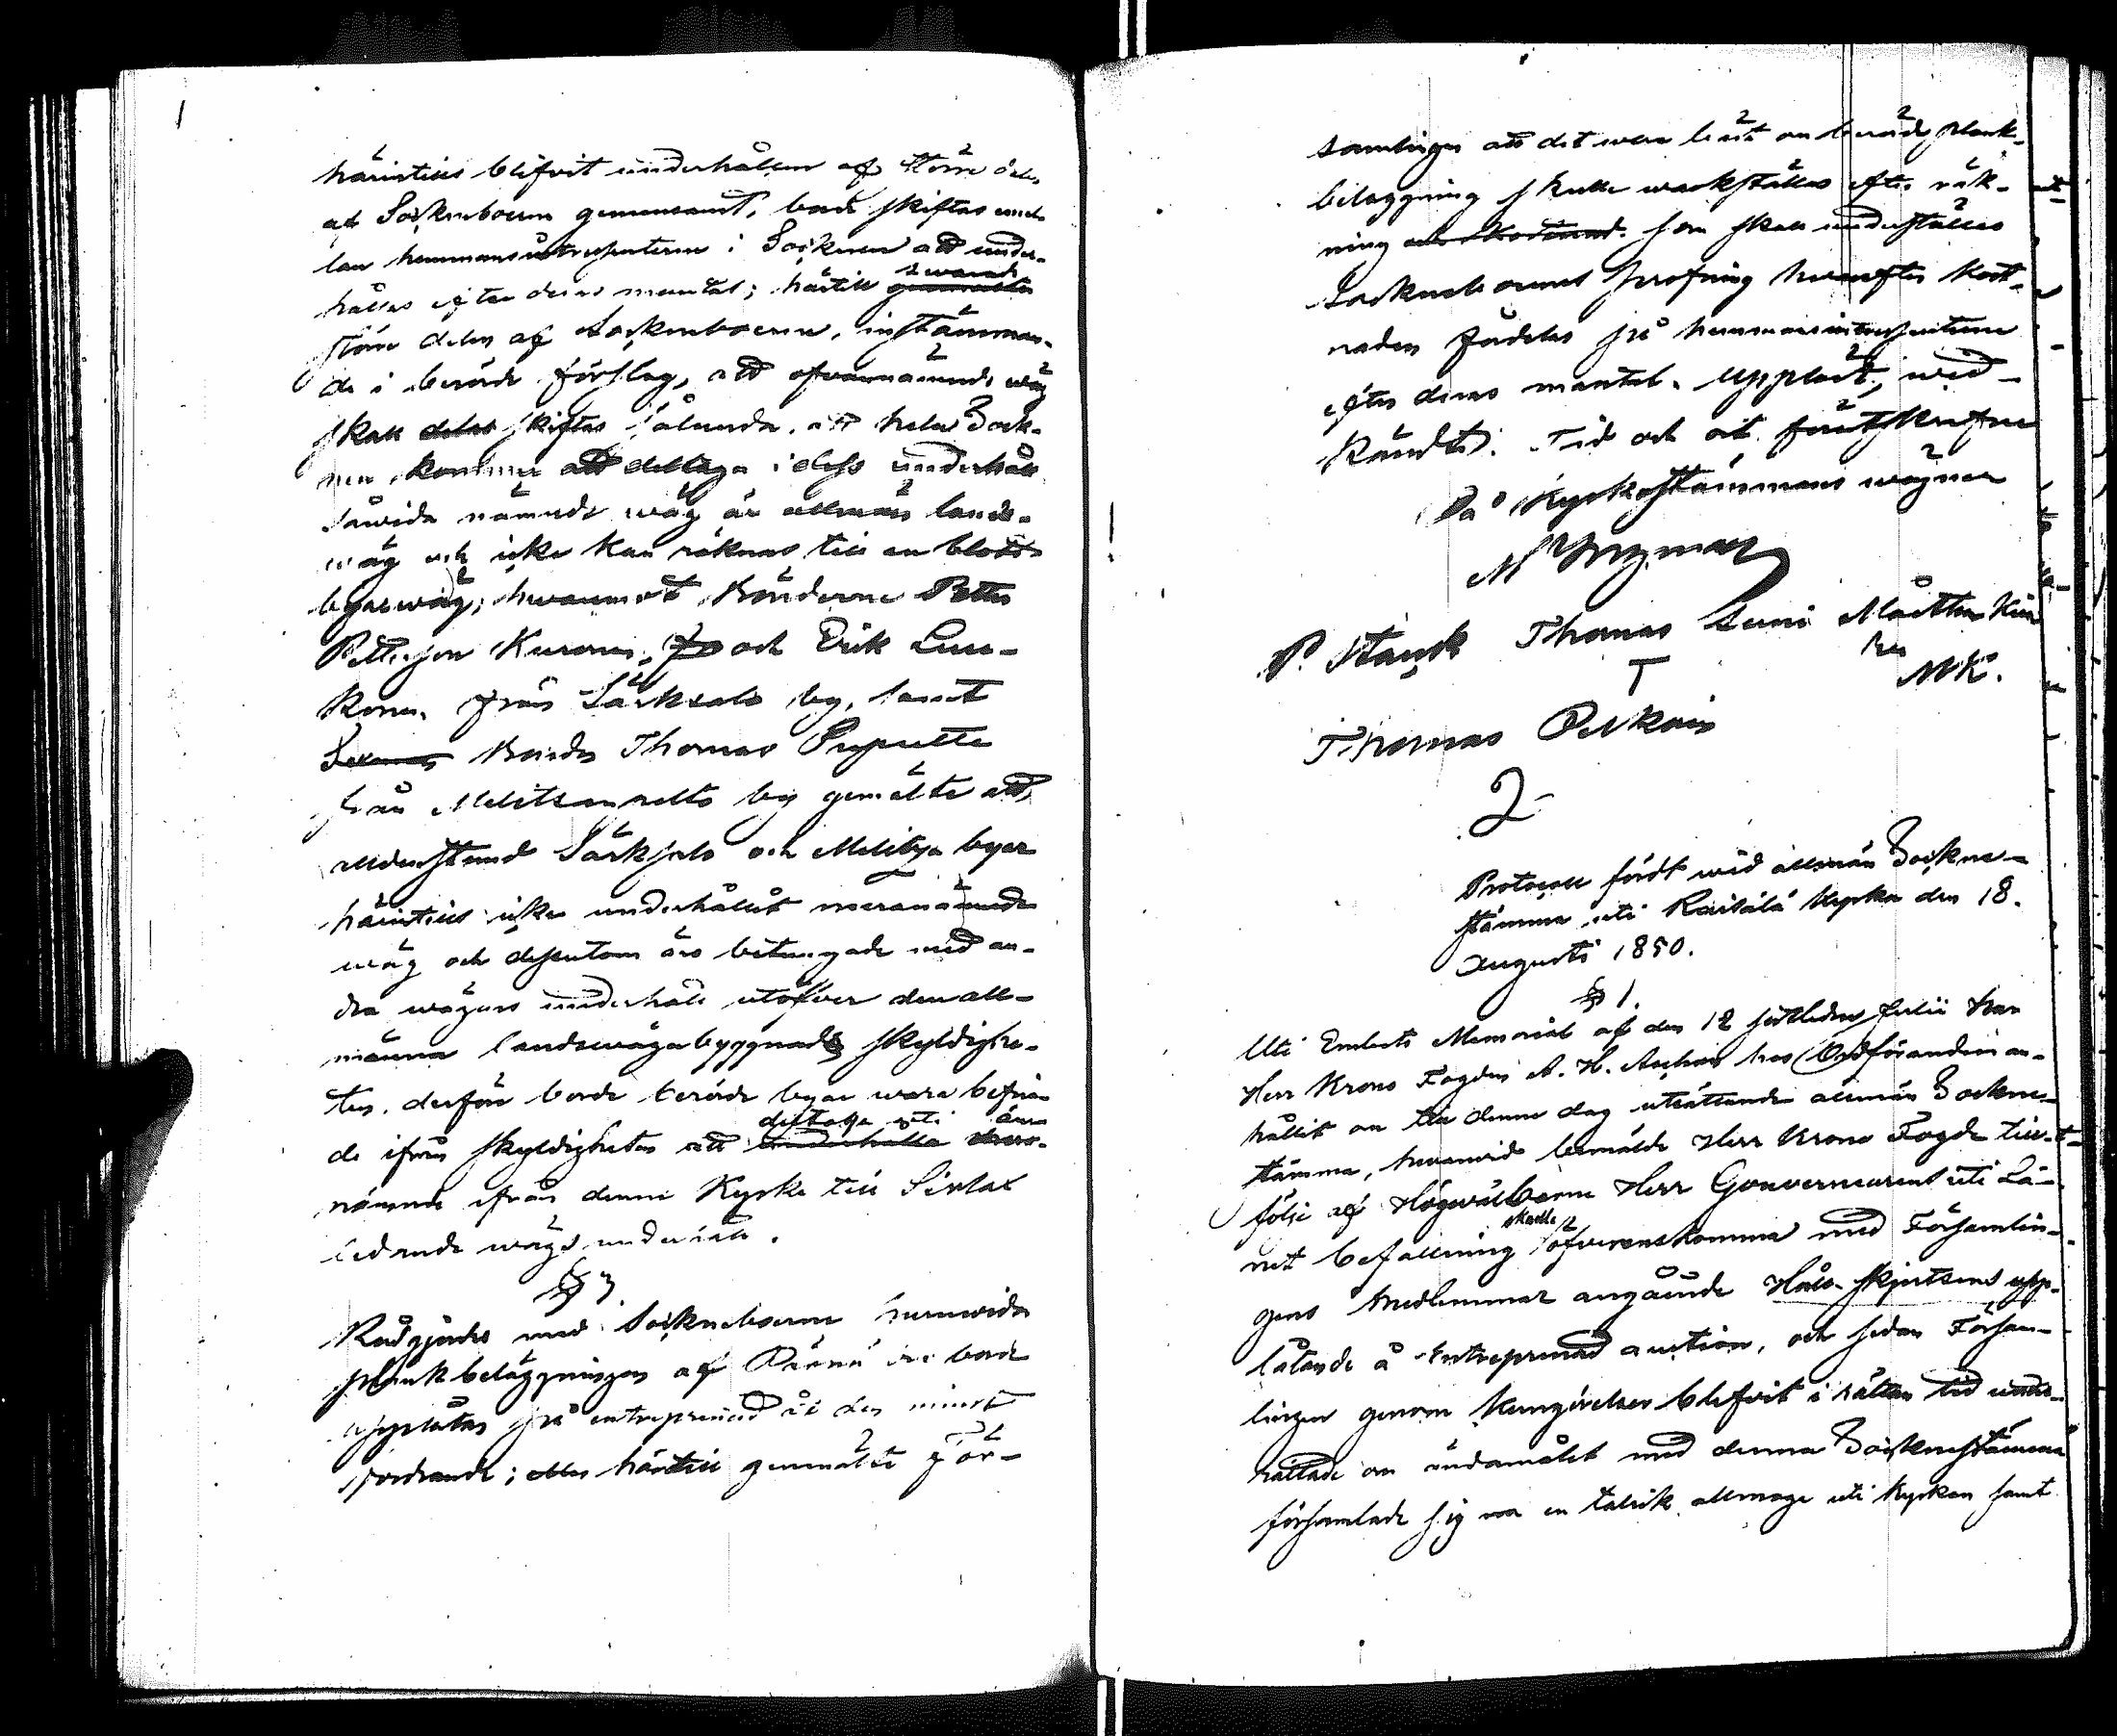 härintills blifvit underhållen af större delen
af Sockneboerne gemensamt, borde skiftas emel-
lan hemmansintressenterne i Socknen att under-
hållas efter deras mantal; härtill genmälte swarade
större delen af Sockneboerne, instämman-
de i berörde förslag, att ofvannämnde wäg
skall delas skiftas sålunda, att hela Sock-
nen kommer att deltaga i dess underhåll
såwida nämnde wäg är allmän lands-
wäg och icke kan räknas till en blott
byawäg; hwaremot Bönderne Petter
Pettersson Kuronen, och Erik Luu-
konen från Särksalo by, samt
Bonden Thomas Puputti
från Melitsanselkä by genmälte att,
alldenstund Särksalo och Melitza byar
härintills icke underhållit meranämnde
wäg och dessutom äro betungade med an-
dra wägars underhåll utöfver den all-
männa landswägabyggnads skyldighe-
ten, derföre borde berörde byar wara befria-
de ifrån skyldigheten att underhålla deltaga uti ofwan-
nämnde ifrån denna Kyrka till Sirlax
ledande wägs underhåll.
§ 3
Rådgjordes med Sockneboerne huruwida
plankbeläggningen af Pärnä bro borde
upplåtas på entreprenad åt den minst
fordrande; eller härtill genmälte för-
samlingen att det wore bäst om berörde plank-
beläggning skulle werkställas efter räk-
ning och kostnad. som skall underställas
Sockneboernes pröfning hwarefter kost-
naden fördelas på hemmansintressenterne
efter deras mantal. Uppläst, wid-
kändt. Tid och ort förutskrefne
På Kyrkostämmans wägnar
P. Stark Thomas Suni Mårtten Kiu
T ru
MK.
Thomas Pekkoin
2
Protocoll fördt wid allmän Sockne-
stämma uti Raisälä Kyrka den 18.
Augusti 1850.
§ 1.
Uti Embets Memorial af den 12 sistledne Julii har
Herr Krono Fogden A. H. Aschan hos Ordföranden an-
hållit om till denne dag utsättande allmän Sockne-
stämma, hwarwid bemälde Herr Krono Fogde till-
följe af Högwälborne Herr Gouverneurens uti Lä-
net befallning skulle öfwerenskomma med Församlin-
gens Medlemmar angående Håll-skjutsens upp-
låtande å Entreprenad auction, och sedan Försam-
lingen genom Kungörelser blefvit i rättan tid under-
rättade om ändamålet med denna Socknestämma
församlade sig nu en talrik allmoge uti Kyrkan samt